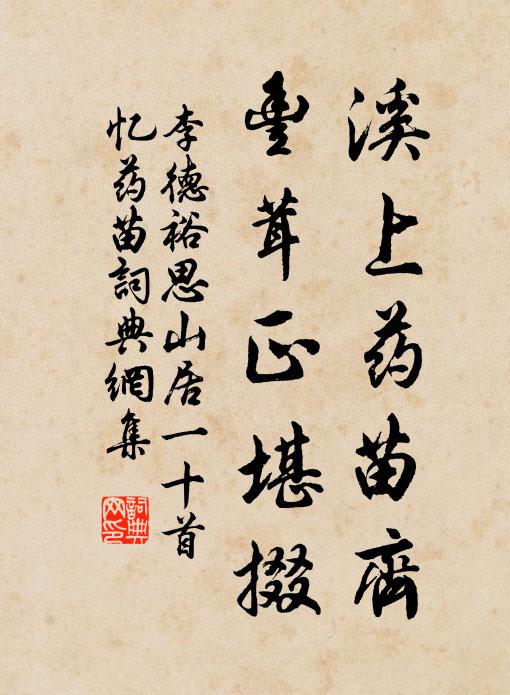 溪上药苗齊
豊茸正堪掇
李德裕思山居一十首
忆药苗詞典網集
詞典
网印